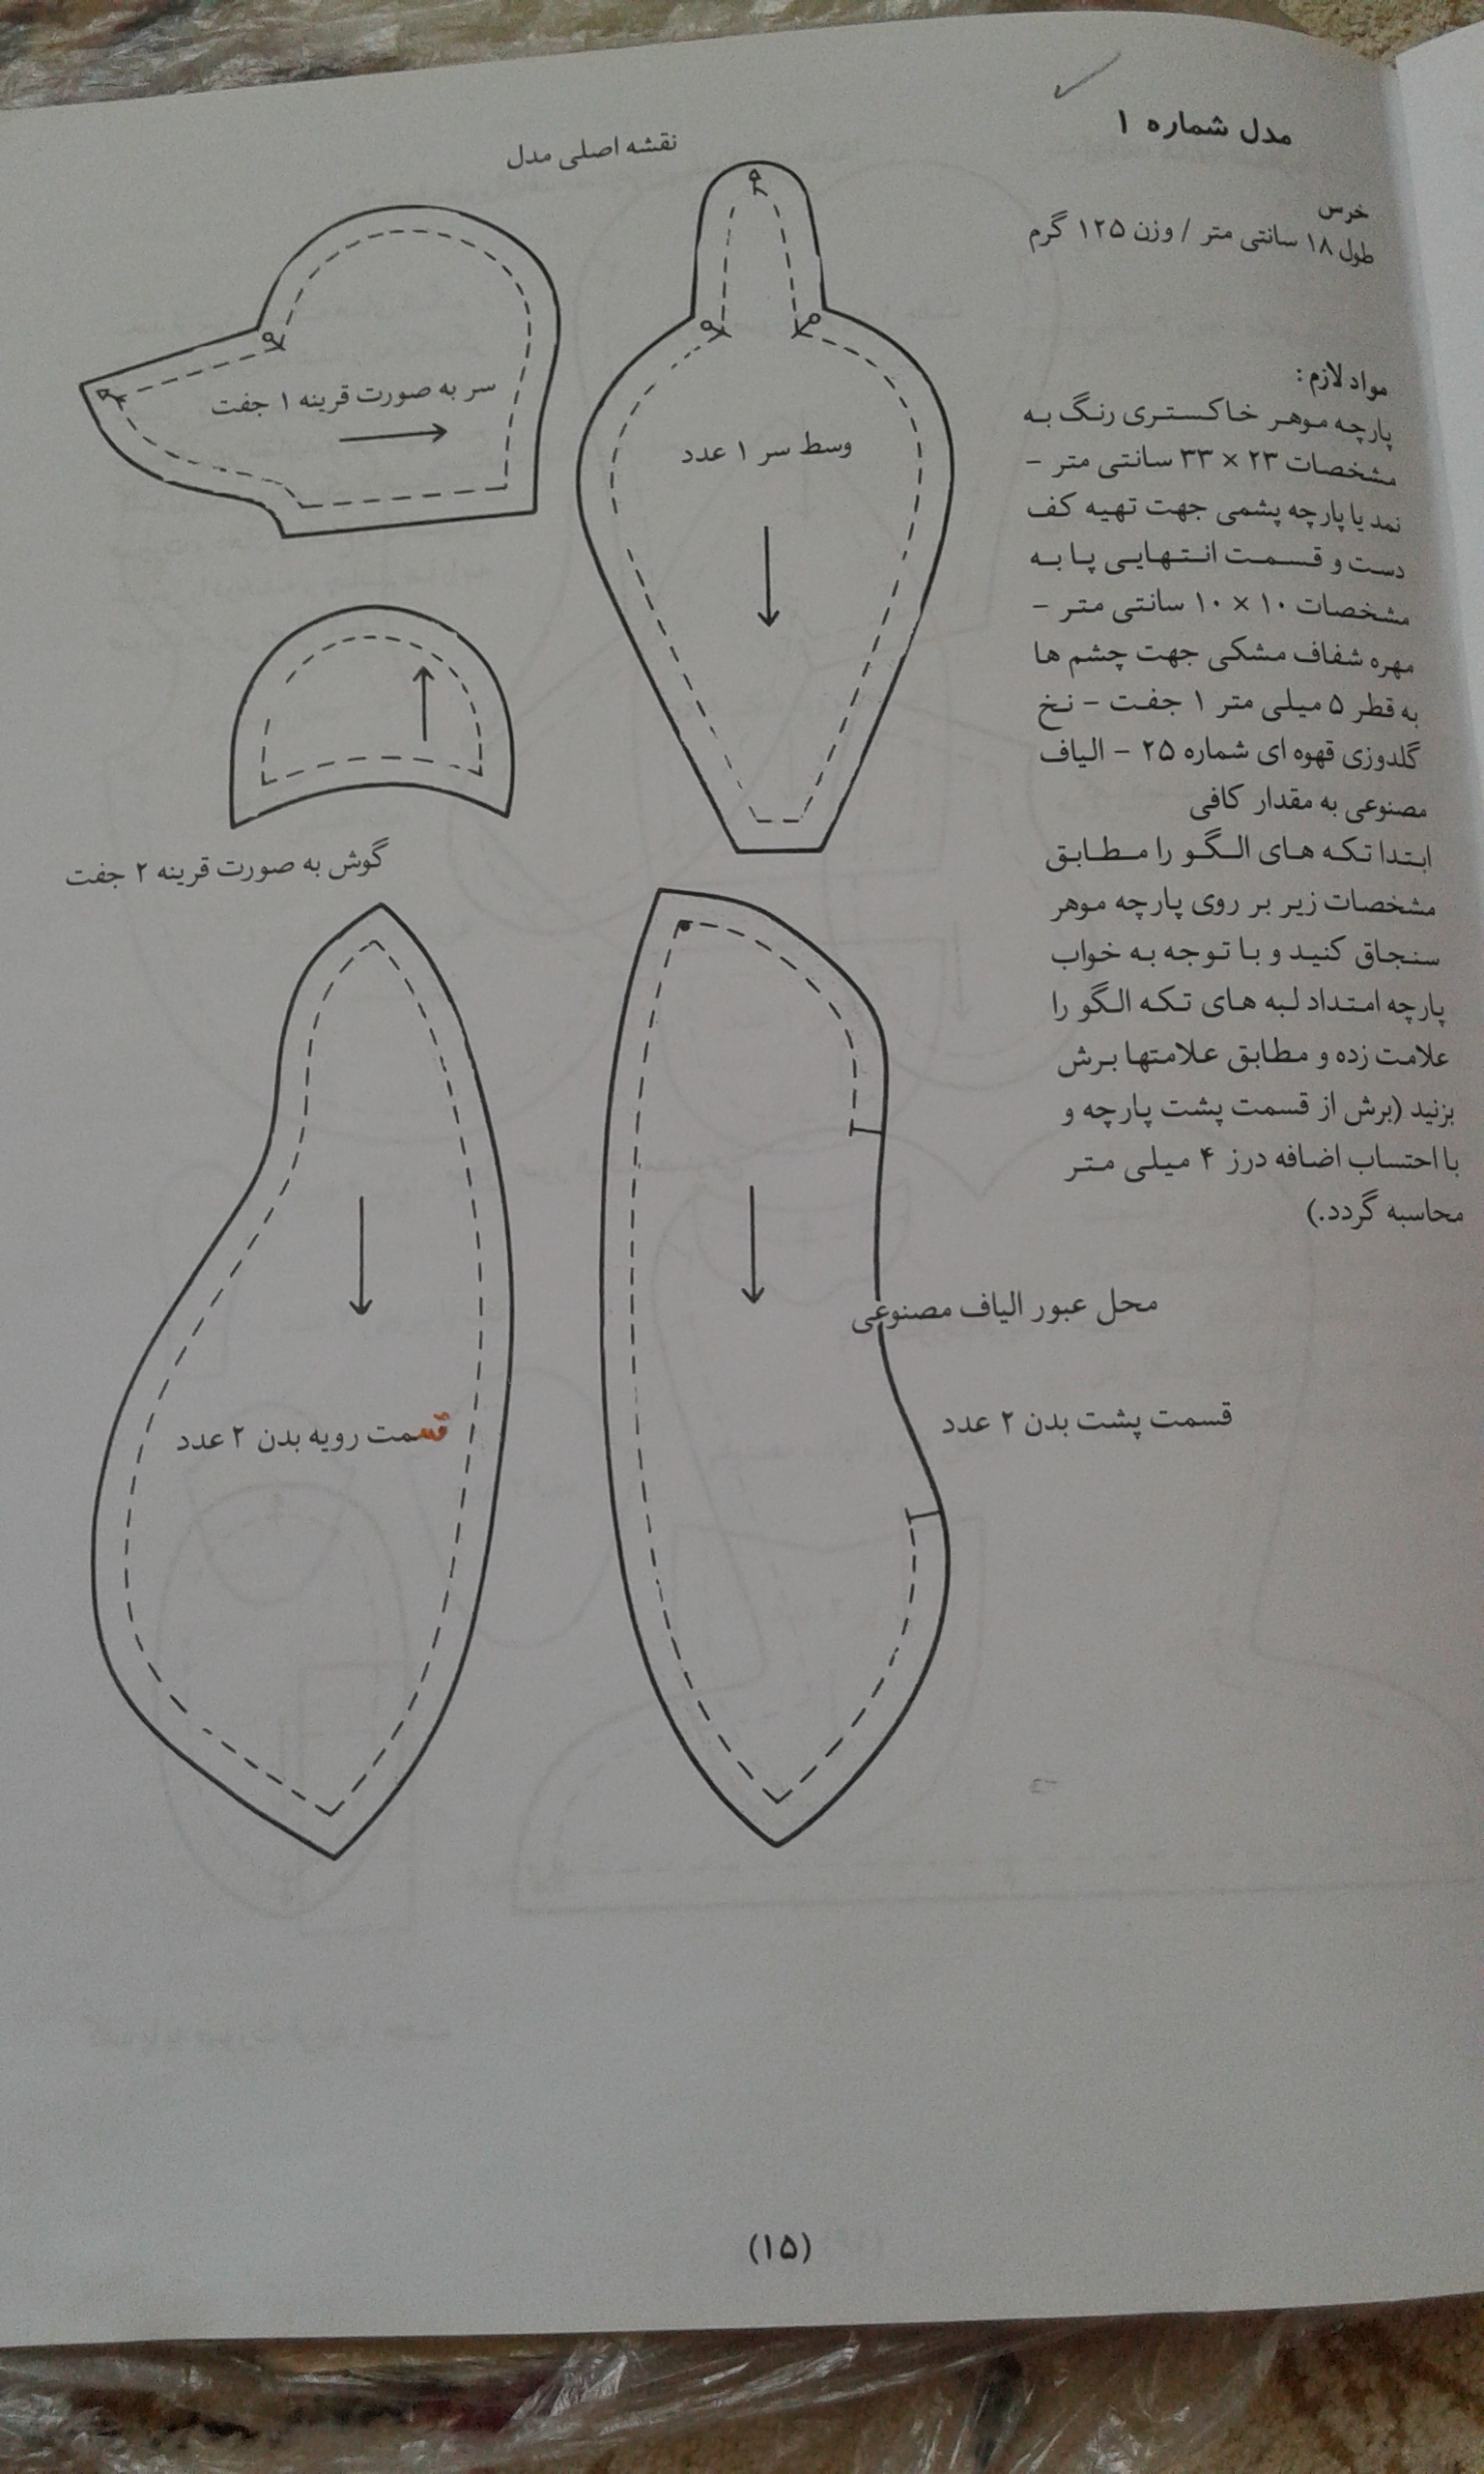 مدل شماره ۱
نقشه اصلی مدل
خرس
طول ۱۸ سانتی متر / وزن ۱۲۵ گرم
مواد لازم :
پارچه موهر خاکستری رنگ به
مشخصات ۲۳ × ۳۳ سانتی متر –
نمد یا پارچه پشمی جهت تهیه کف
دست و قسمت انتهایی پا به
مشخصات ۱۰ × ۱۰ سانتی متر –
مهره شفاف مشکی جهت چشم ها
به قطر ۵ میلی متر ۱ جفت – نخ
گلدوزی قهوه ای شماره ۲۵ – الیاف
مصنوعی به مقدار کافی
ابتدا تکه های الگو را مطابق
مشخصات زیر بر روی پارچه موهر
سنجاق کنید و با توجه به خواب
پارچه امتداد لبه های تکه الگو را
علامت زده و مطابق علامتها برش
بزنید (برش از قسمت پشت پارچه و
با احتساب اضافه درز ۴ میلی متر
محاسبه گردد.)
سر به صورت قرینه ۱ جفت
وسط سر ۱ عدد
گوش به صورت قرینه ۲ جفت
محل عبور الیاف مصنوعی
قسمت پشت بدن ۲ عدد
قسمت رویه بدن ۲ عدد
(۱۵)